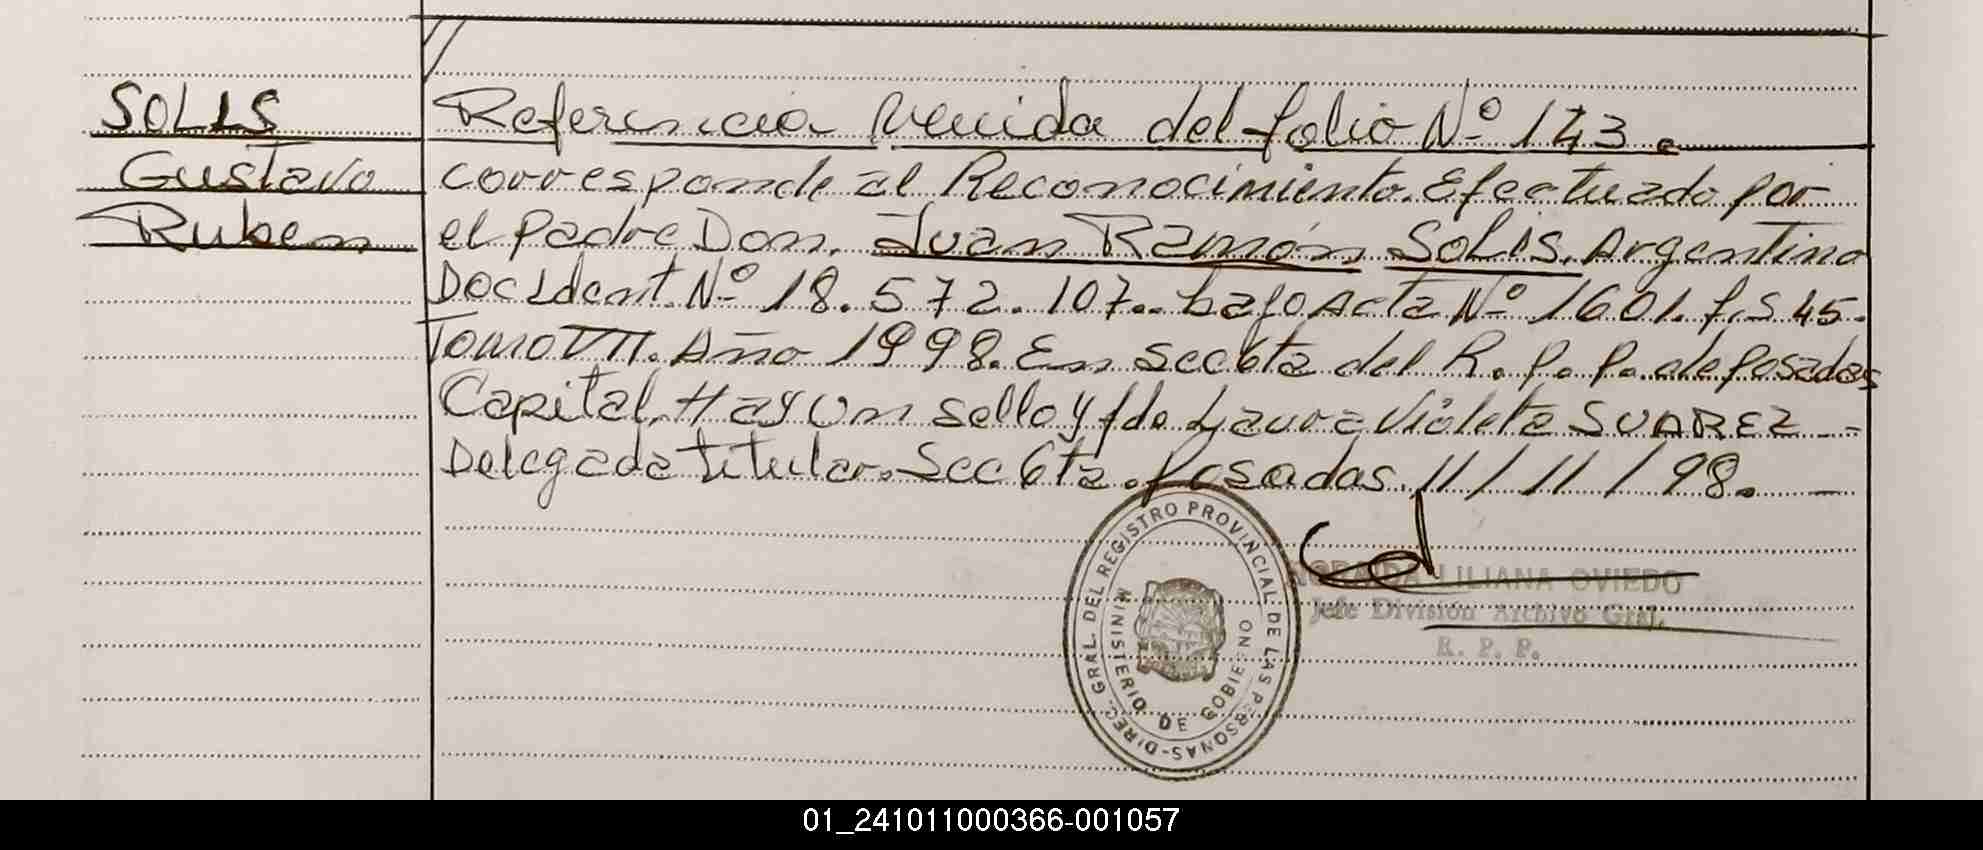 SOLIS
Gustavo
Ruben
Referencia venida del folio Nº 143.
corresponde al Reconocimiento. Efectuado por
el padre Don. Juan Ramón SOLIS. Argentino
Doc Ident. Nº 18.572.107.. bajo Acta Nº 1601. f.S 45.
Tomo VII. Año 1998. En Secc 6ta del R.P.P. de Posadas
Capital. Hay Un sello y fdo Laura Violeta SUAREZ -
Delegada titular. Secc 6ta. Posadas. 11/11/98. -
DIREC. GRAL. DEL REGISTRO PROVINCIAL DE LAS PERSONAS-
MINISTERIO DE GOBIERNO
LILIANA OVIEDO
Jefe División Archivo Gral.
R. P. P.
01_241011000366-001057